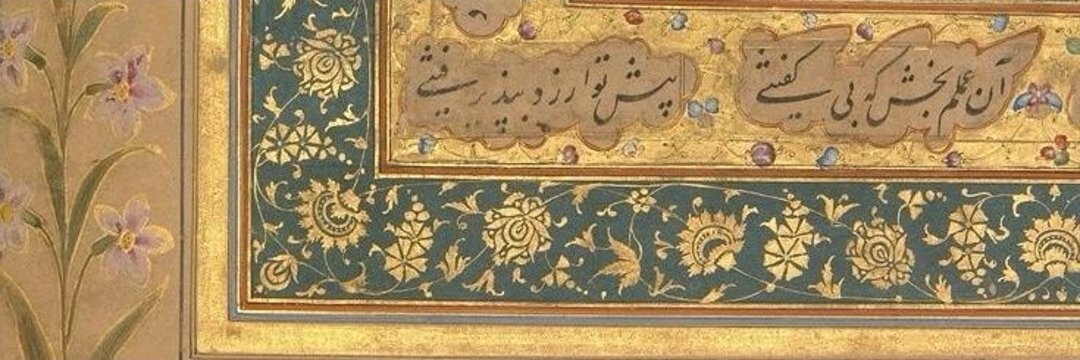 آن عملم بخش که بی گفتنی پیش تو ارزد بپذیرفتنی